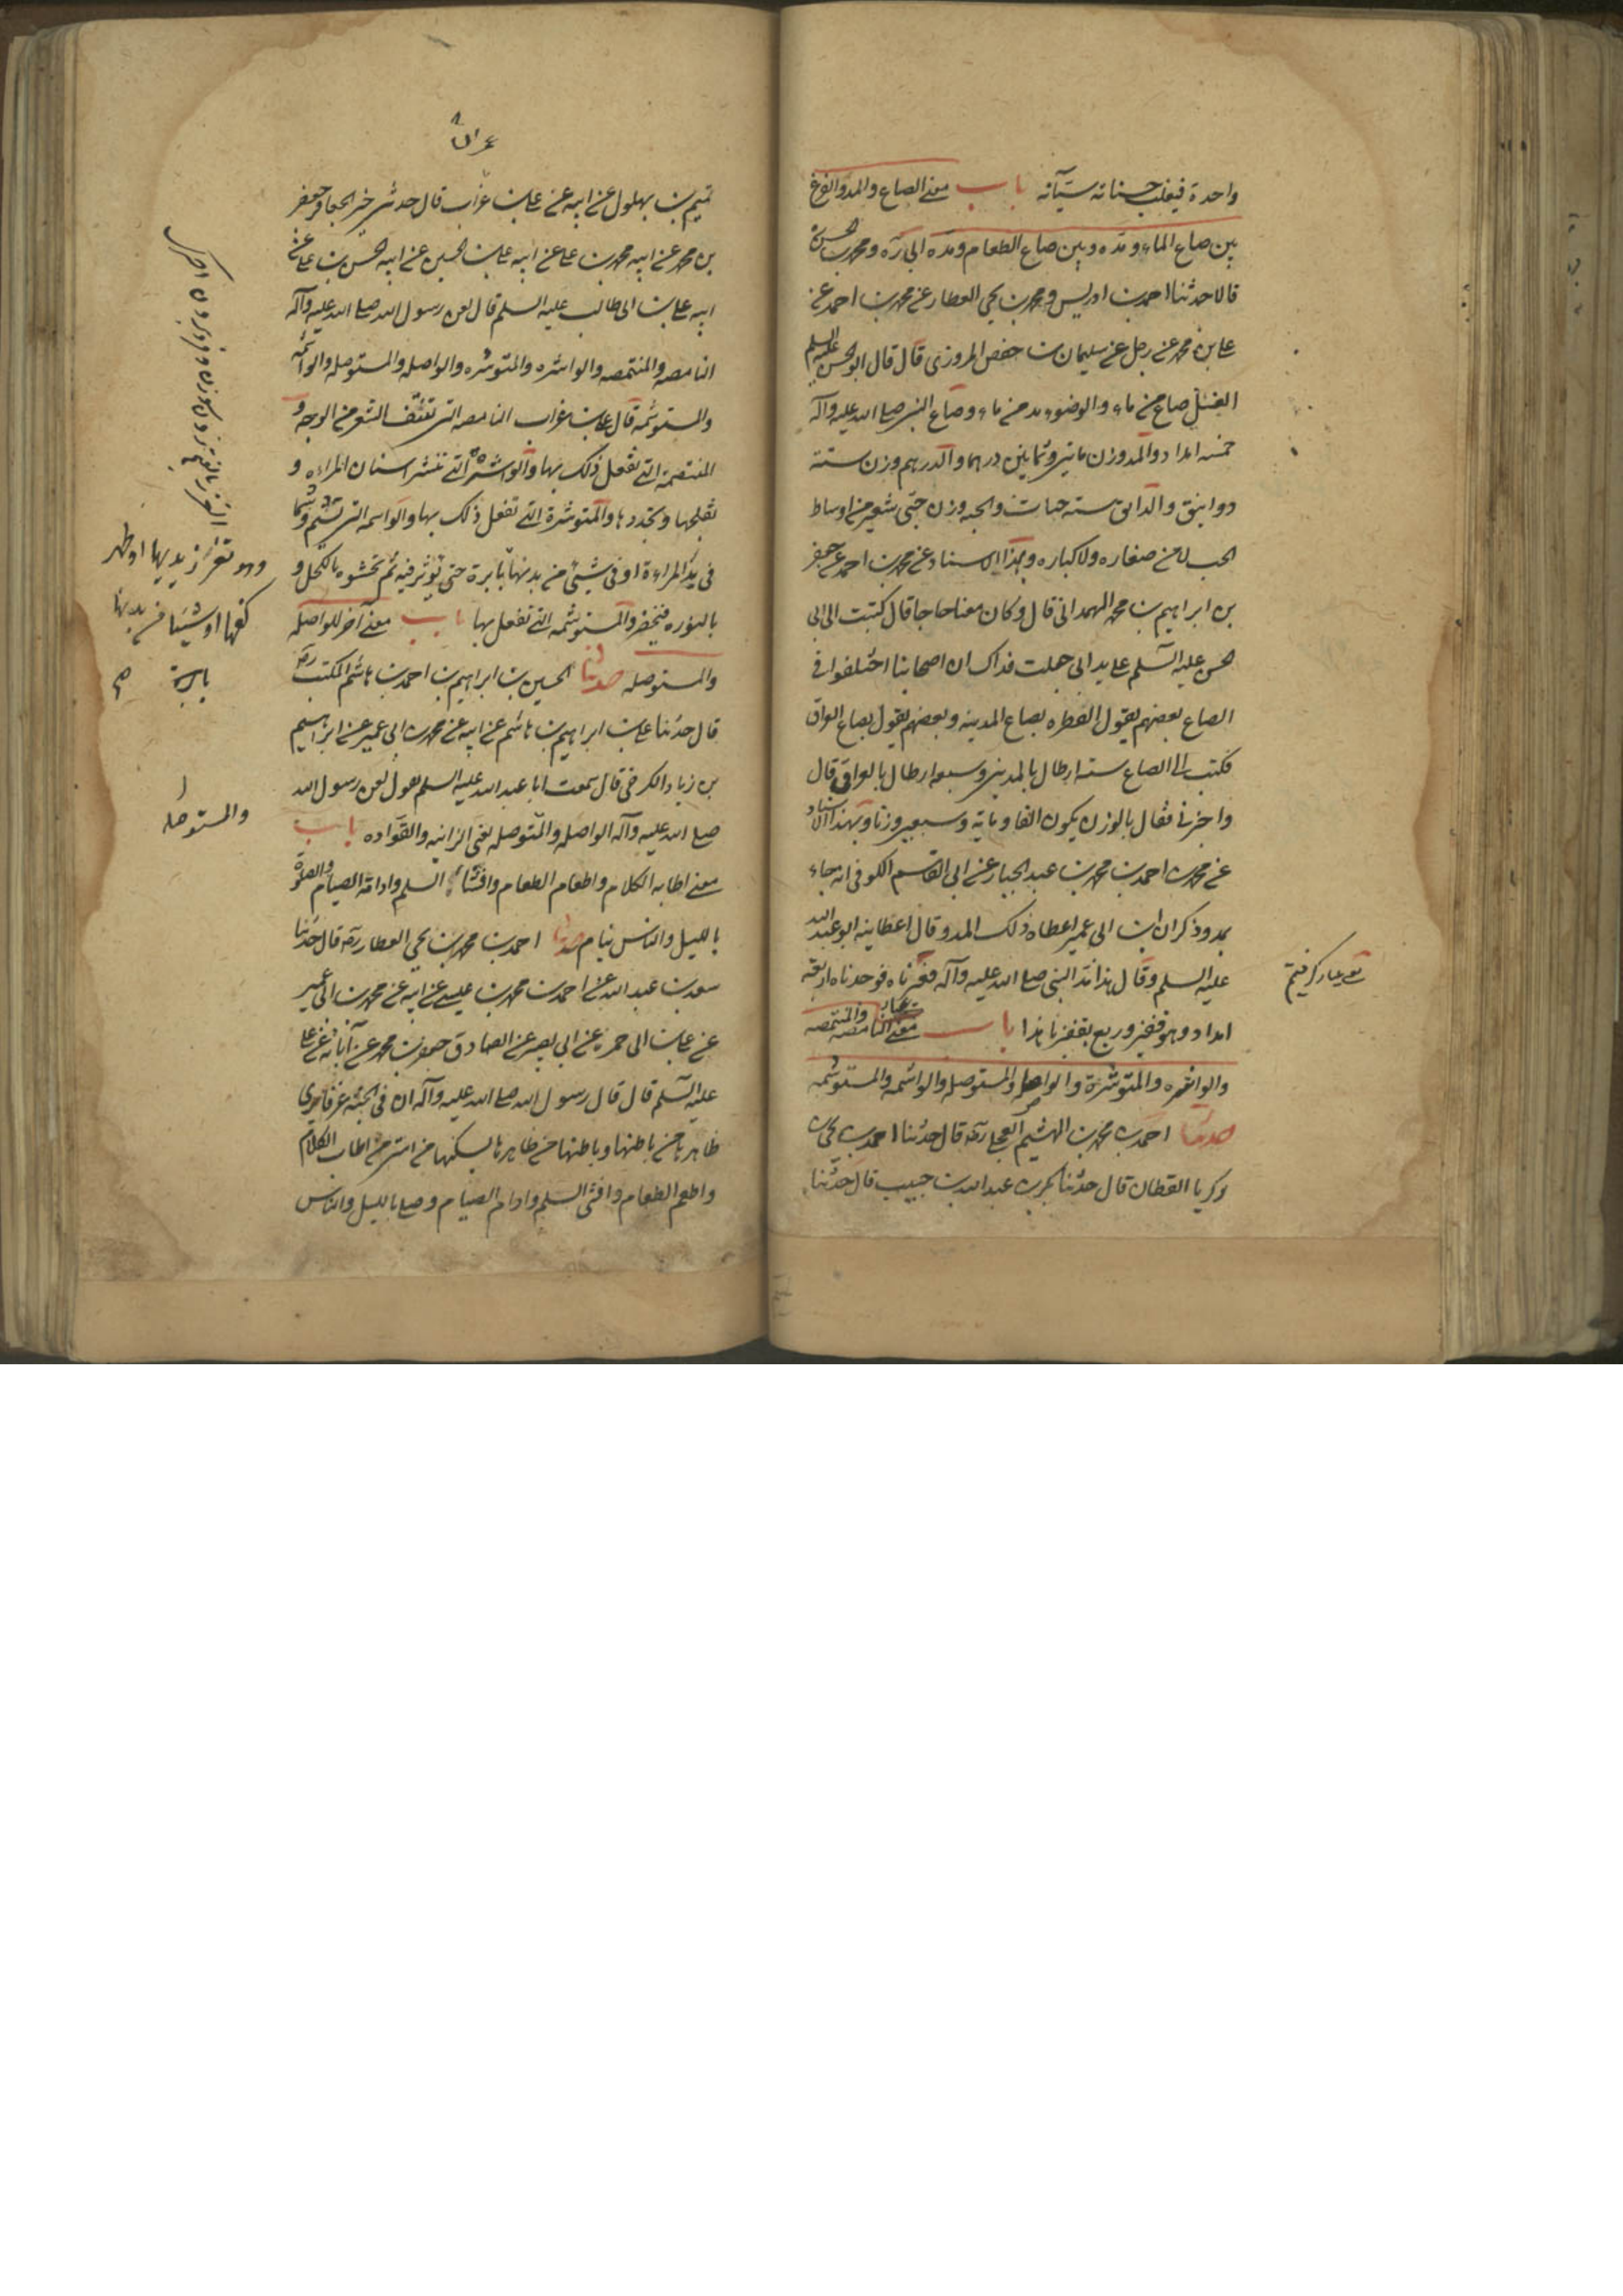 واحدة فيغلب حسناته سيّآته باب معنى الصاع والمد والفرق
بين صاع الماء ومدّه وبين صاع الطعام ومدّه ابى ره ومحمد بن الحسن
قالا حدثنا احمد بن ادريس ومحمد بن يحيى العطار عن محمد بن احمد عن
على بن محمد عن رجل عن سليمان بن حفص المروزى قال قال ابو الحسن عليه السلم
الغسل صاع من ماء والوضوء مد من ماء وصاع النبى صلى الله عليه وآله
خمسه امداد والمد وزن مأتين وثمانين درهما والدرهم وزن ستة
دوانيق والدانق سته حبات والحبه وزن حبّتى شعير من اوساط
الحب لا من صغاره ولا كباره وبهذا الاسناد عن محمد بن احمد عن جعفر
بن ابراهيم بن محمد الهمدانى قال وكان معنا حاجا قال كتبت الى ابى
الحسن عليه السلم على يد ابى جعلت فداك ان اصحابنا اختلفوا فى
الصاع بعضهم يقول الفطره بصاع المدينه وبعضهم يقول بصاع العراق
فكتب الى الصاع سته ارطال بالمدينى وسبعه ارطال بالعراقى قال
واخبرنى فقال بالوزن يكون الفا ومأية وسبعين وزنا وبهذا الاسناد
عن محمد بن احمد بن محمد بن عبد الجبار عن ابى القاسم الكوفى انه جاء
بمد وذكر ان ابن ابى عمير اعطاه ذلك المد وقال اعطانيه ابو عبد الله
عليه السلم وقال هذا مدّ النبى صلى الله عليه وآله فعيّرناه فوجدناه اربعة
امداد وهو قفيز وربع بقفيزنا هذا باب معنى النامصه والمنتمصه
والواشره والمتوشرة والواصله والمستوصله والواشمه والمستوشمه
حدثنا احمد بن محمد بن الهيثم العجلى ره قال حدثنا احمد بن يحيى بن
زكريا القطان قال حدثنا بكر بن عبد الله بن حبيب قال حدّثنا
تميم بن بهلول عن ابيه عن على بن غراب قال حدثنى خير الجعافر جعفر
بن محمد عن ابيه محمد بن على عن ابيه على بن الحسين عن ابيه الحسين بن على عن
ابيه على بن ابى طالب عليه السلم قال لعن رسول الله صلى الله عليه وآله
النامصه والمنتمصه والواشره والمتوشره والواصله والمستوصله والواشمه
والمستوشمه قال على بن غراب النامصه التى تنتف الشعر من الوجه و
المنتمصة التى تفعل ذلك بها والواشرة التى تنشر اسنان المراءه و
تفلجها وتحددها والمتوشرة التى تفعل ذلك بها والواشمه التى تشم وشما
فى يد المراءة او فى شيئ من بدنها بابرة حتى تؤثر فيه ثم تحشوه بالكحل و
بالنوره فيخضر والمستوشمه التى تفعل بها باب معنى آخر للواصله
والمستوصله حدثنا الحسين بن ابراهيم بن احمد بن هاشم المكتب ره
قال حدثنا على بن ابراهيم بن هاشم عن ابيه عن محمد بن ابى عمير عن ابراهيم
بن زياد الكرخى قال سمعت ابا عبد الله عليه السلم يقول لعن رسول الله
صلى الله عليه وآله الواصله والمتوصله يعنى الزانيه والقوّاده باب
معنى اطابه الكلام واطعام الطعام وافشاء السلم وادامة الصيام والصلوة
بالليل والناس نيام حدثنا احمد بن محمد بن يحيى العطار ره قال حدثنا
سعد بن عبد الله عن احمد بن محمد بن عيسى عن ابيه عن محمد بن ابى عمير
عن على بن ابى حمزه عن ابى بصير عن الصادق جعفر بن محمد عن آبائه عن على
عليه السلم قال قال رسول الله صلى الله عليه وآله ان فى الجنّه غرفا يرى
ظاهرها من باطنها وباطنها من ظاهرها يسكنها من امتى من اطاب الكلام
واطعم الطعام وافشى السلم وادام الصيام وصلى بالليل والناس
وهو تغرز يديها او ظهر
كفها او شيئا من بدنها
بابرة
والمستوصله